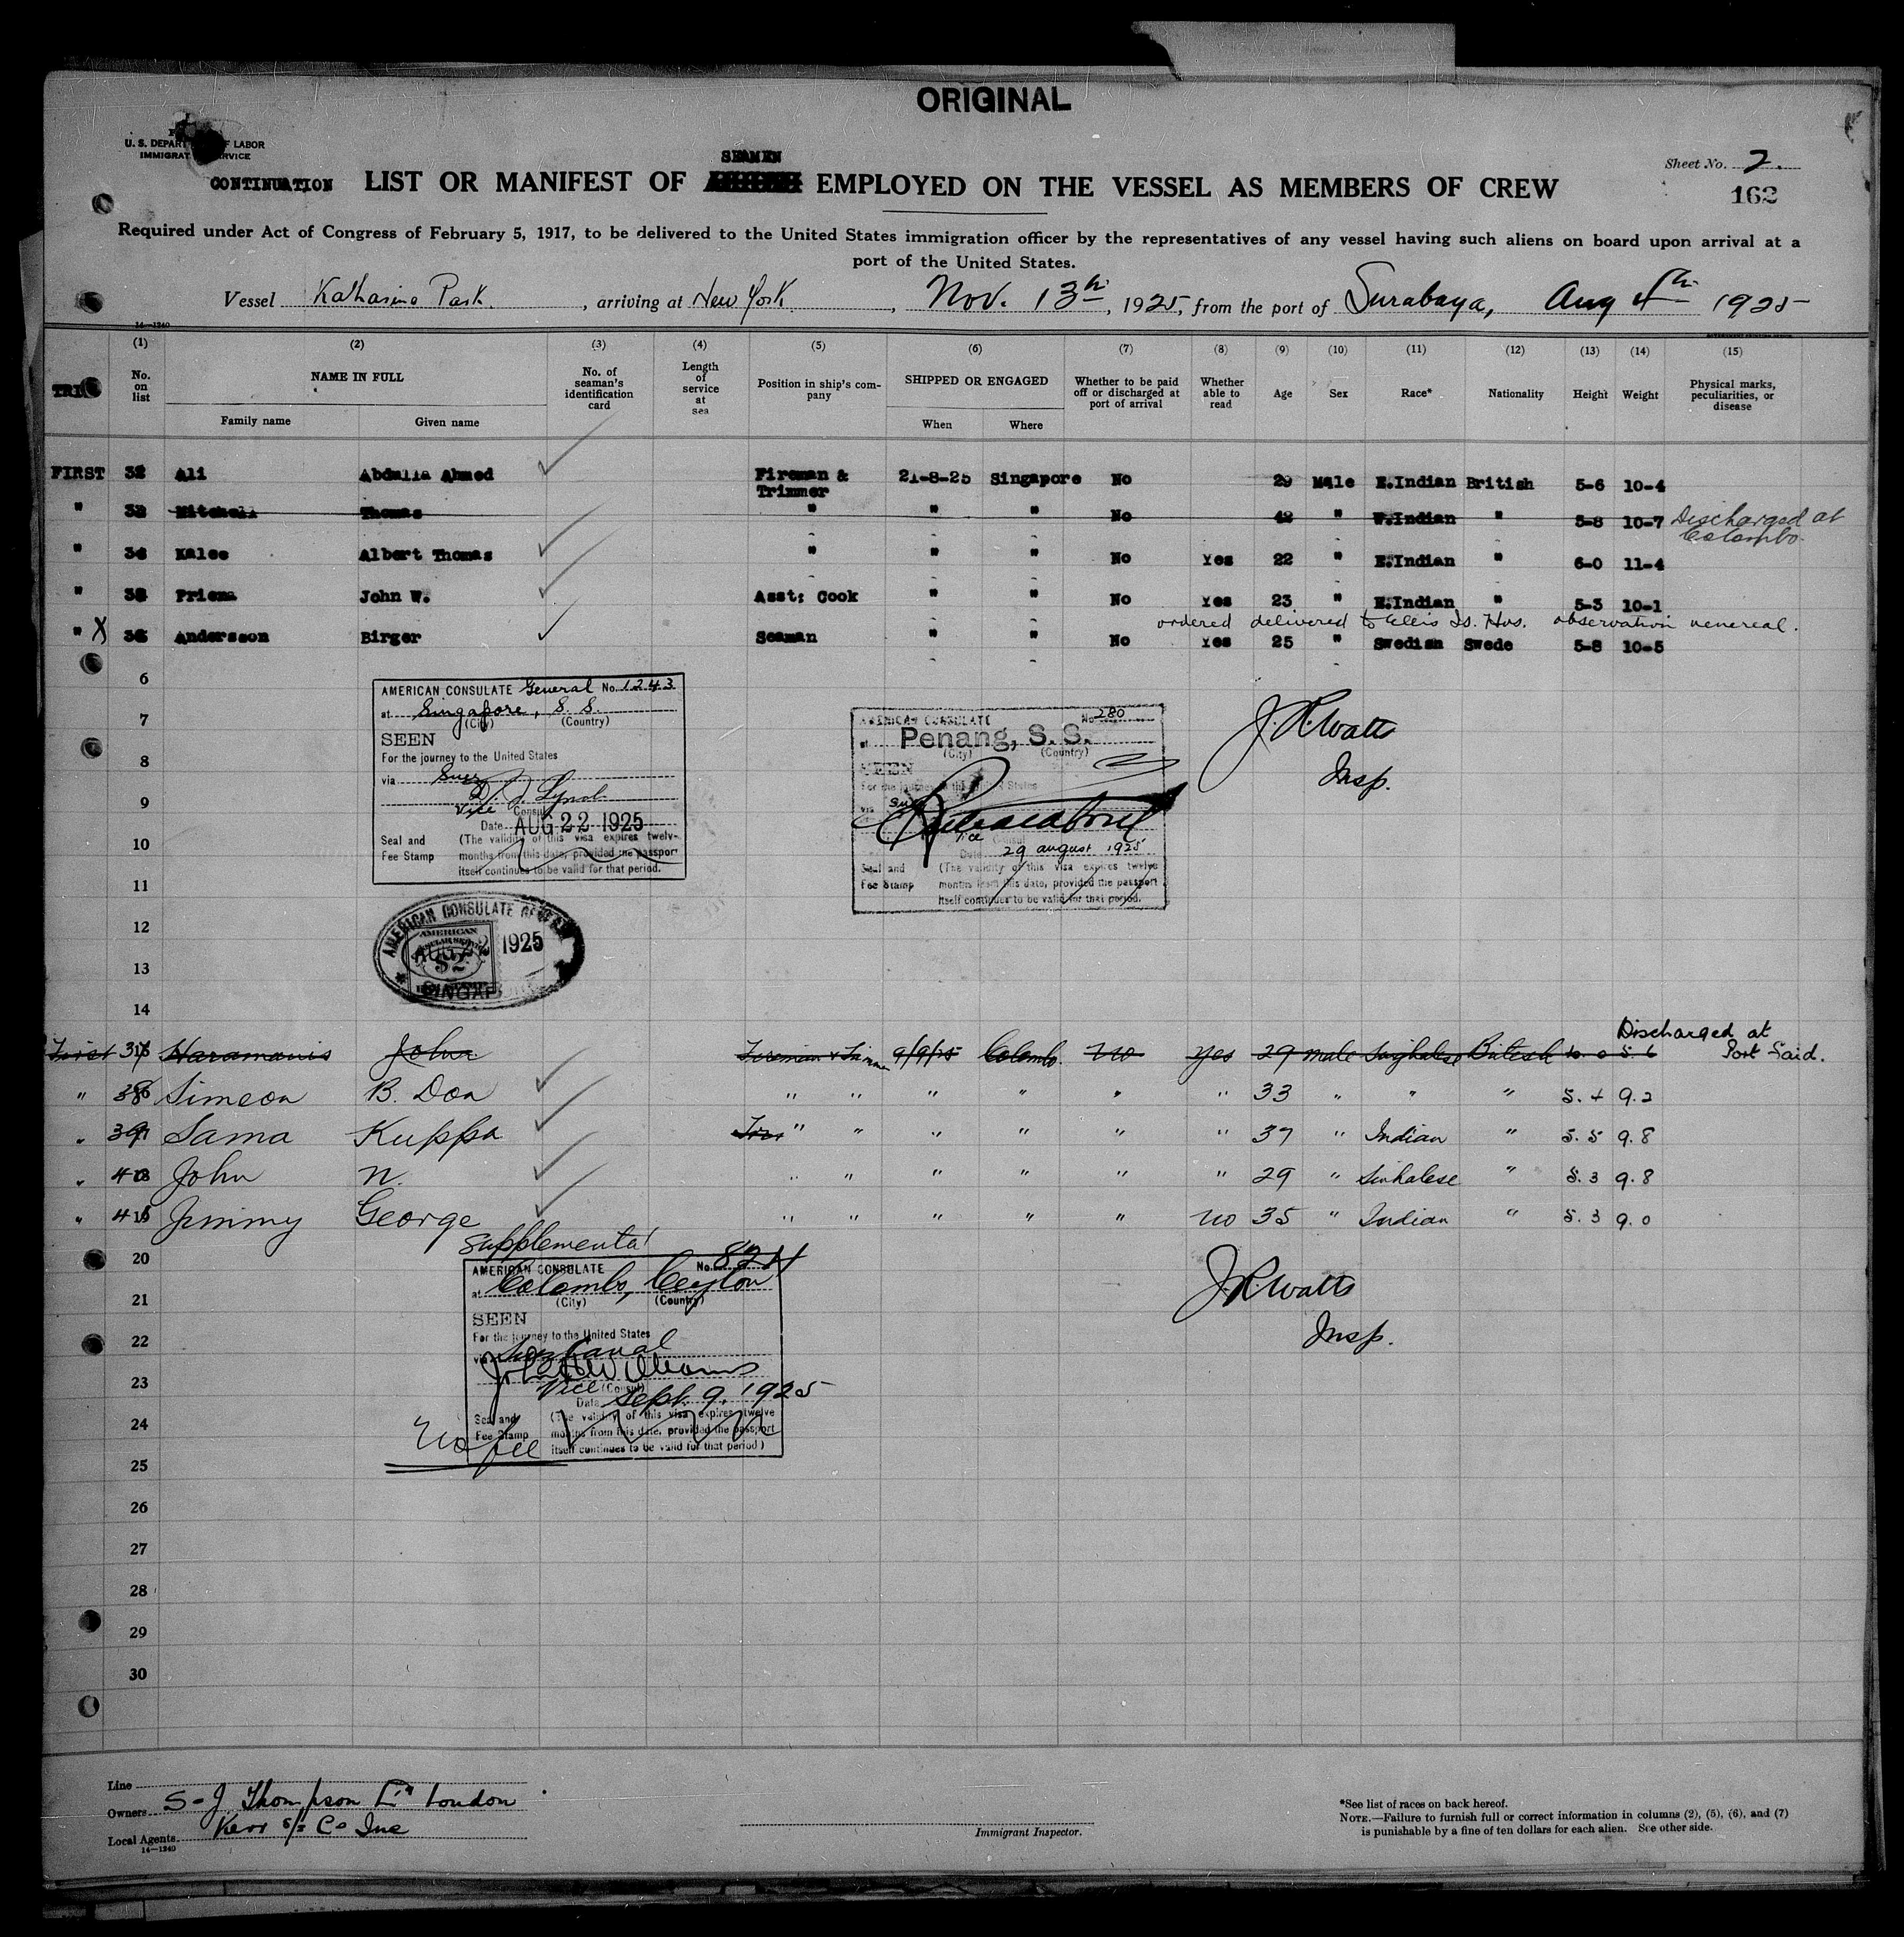 ORIGINAL
U. S. DEPART OF LABOR
IMMIGRAT SERVICE
SEAMEN
CONTINUATION LIST OR MANIFEST OF EMPLOYED ON THE VESSEL AS MEMBERS OF CREW
Sheet No. 2.
162
Required under Act of Congress of February 5, 1917, to be delivered to the United States immigration officer by the representatives of any vessel having such aliens on board upon arrival at a
port of the United States.
Vessel Katharine Park, arriving at New York, Nov. 13th, 1925, from the port of Surabaya, Aug 4th 1925
14—1240
(1) (2) (3) (4) (5) (6) (7) (8) (9) (10) (11) (12) (13) (14) (15)
No. on list
NAME IN FULL
Family name Given name
No. of seaman's identification card
Length of service at sea
Position in ship's company
SHIPPED OR ENGAGED
When Where
Whether to be paid off or discharged at port of arrival
Whether able to read
Age Sex Race* Nationality Height Weight
Physical marks, peculiarities, or disease
FIRST 32 Ali Abdulla Ahmed Fireman & Trimmer 21-8-25 Singapore No 29 Male E.Indian British 5-6 10-4
" 33 Mitchell Thomas " " " No 42 " W.Indian " 5-8 10-7 Discharged at Colombo.
" 34 Kalee Albert Thomas " " " No Yes 22 " E.Indian " 6-0 11-4
" 35 Priema John W. Asst; Cook " " No Yes 23 " E.Indian " 5-3 10-1
ordered delivered to Ellis Is. Hos. observation venereal.
" X 36 Andersson Birger Seaman " " No Yes 25 " Swedish Swede 5-8 10-5
6
7
8
9
10
11
12
13
14
AMERICAN CONSULATE General No. 1243
at Singapore, S. S.
(City) (Country)
SEEN
For the journey to the United States
via Suez
Vice Consul
Date AUG 22 1925
Seal and Fee Stamp
(The validity of this visa expires twelve
months from this date, provided the passport
itself continues to be valid for that period.
AMERICAN CONSULATE No 280
at Penang, S. S.
(City) (Country)
SEEN
For the journey to the United States
via Suez
Vice
Date 29 august 1925
Seal and Fee Stamp
(The validity of this visa expires twelve
months from this date, provided the passport
itself continues to be valid for that period.
J. R. Watts
Insp.
AMERICAN CONSULATE GENERAL
AMERICAN
AUG 22 1925
$2
SINGAPORE
First 37 Haramanis John Fireman & Trimmer 9/9/25 Colombo No Yes 29 male Singhalese British 10. 0 5. 6 Discharged at Port Said.
" 38 Simeon B. Don " " " " " " 33 " " " 5. 4 9. 2
" 39 Sama Kuppa " " " " " " 37 " Indian " 5. 5 9. 8
" 40 John N. " " " " " " 29 " Sinhalese " 5. 3 9. 8
" 41 Jimmy George " " " " " No 35 " Indian " 5. 3 9. 0
Supplemental
AMERICAN CONSULATE No. 824
at Colombo, Ceylon
(City) (Country)
SEEN
For the journey to the United States
via Suez Canal
Vice (Consul)
Date Sept. 9, 1925
Seal and Fee Stamp
(The validity of this visa expires twelve
months from this date, provided the passport
itself continues to be valid for that period)
No fee
J. R. Watts
Insp.
20
21
22
23
24
25
26
27
28
29
30
Line
Owners S-J Thompson Ltd London
Local Agents Kerr S/S Co Inc
14—1240
Immigrant Inspector.
*See list of races on back hereof.
NOTE.—Failure to furnish full or correct information in columns (2), (5), (6), and (7)
is punishable by a fine of ten dollars for each alien. See other side.